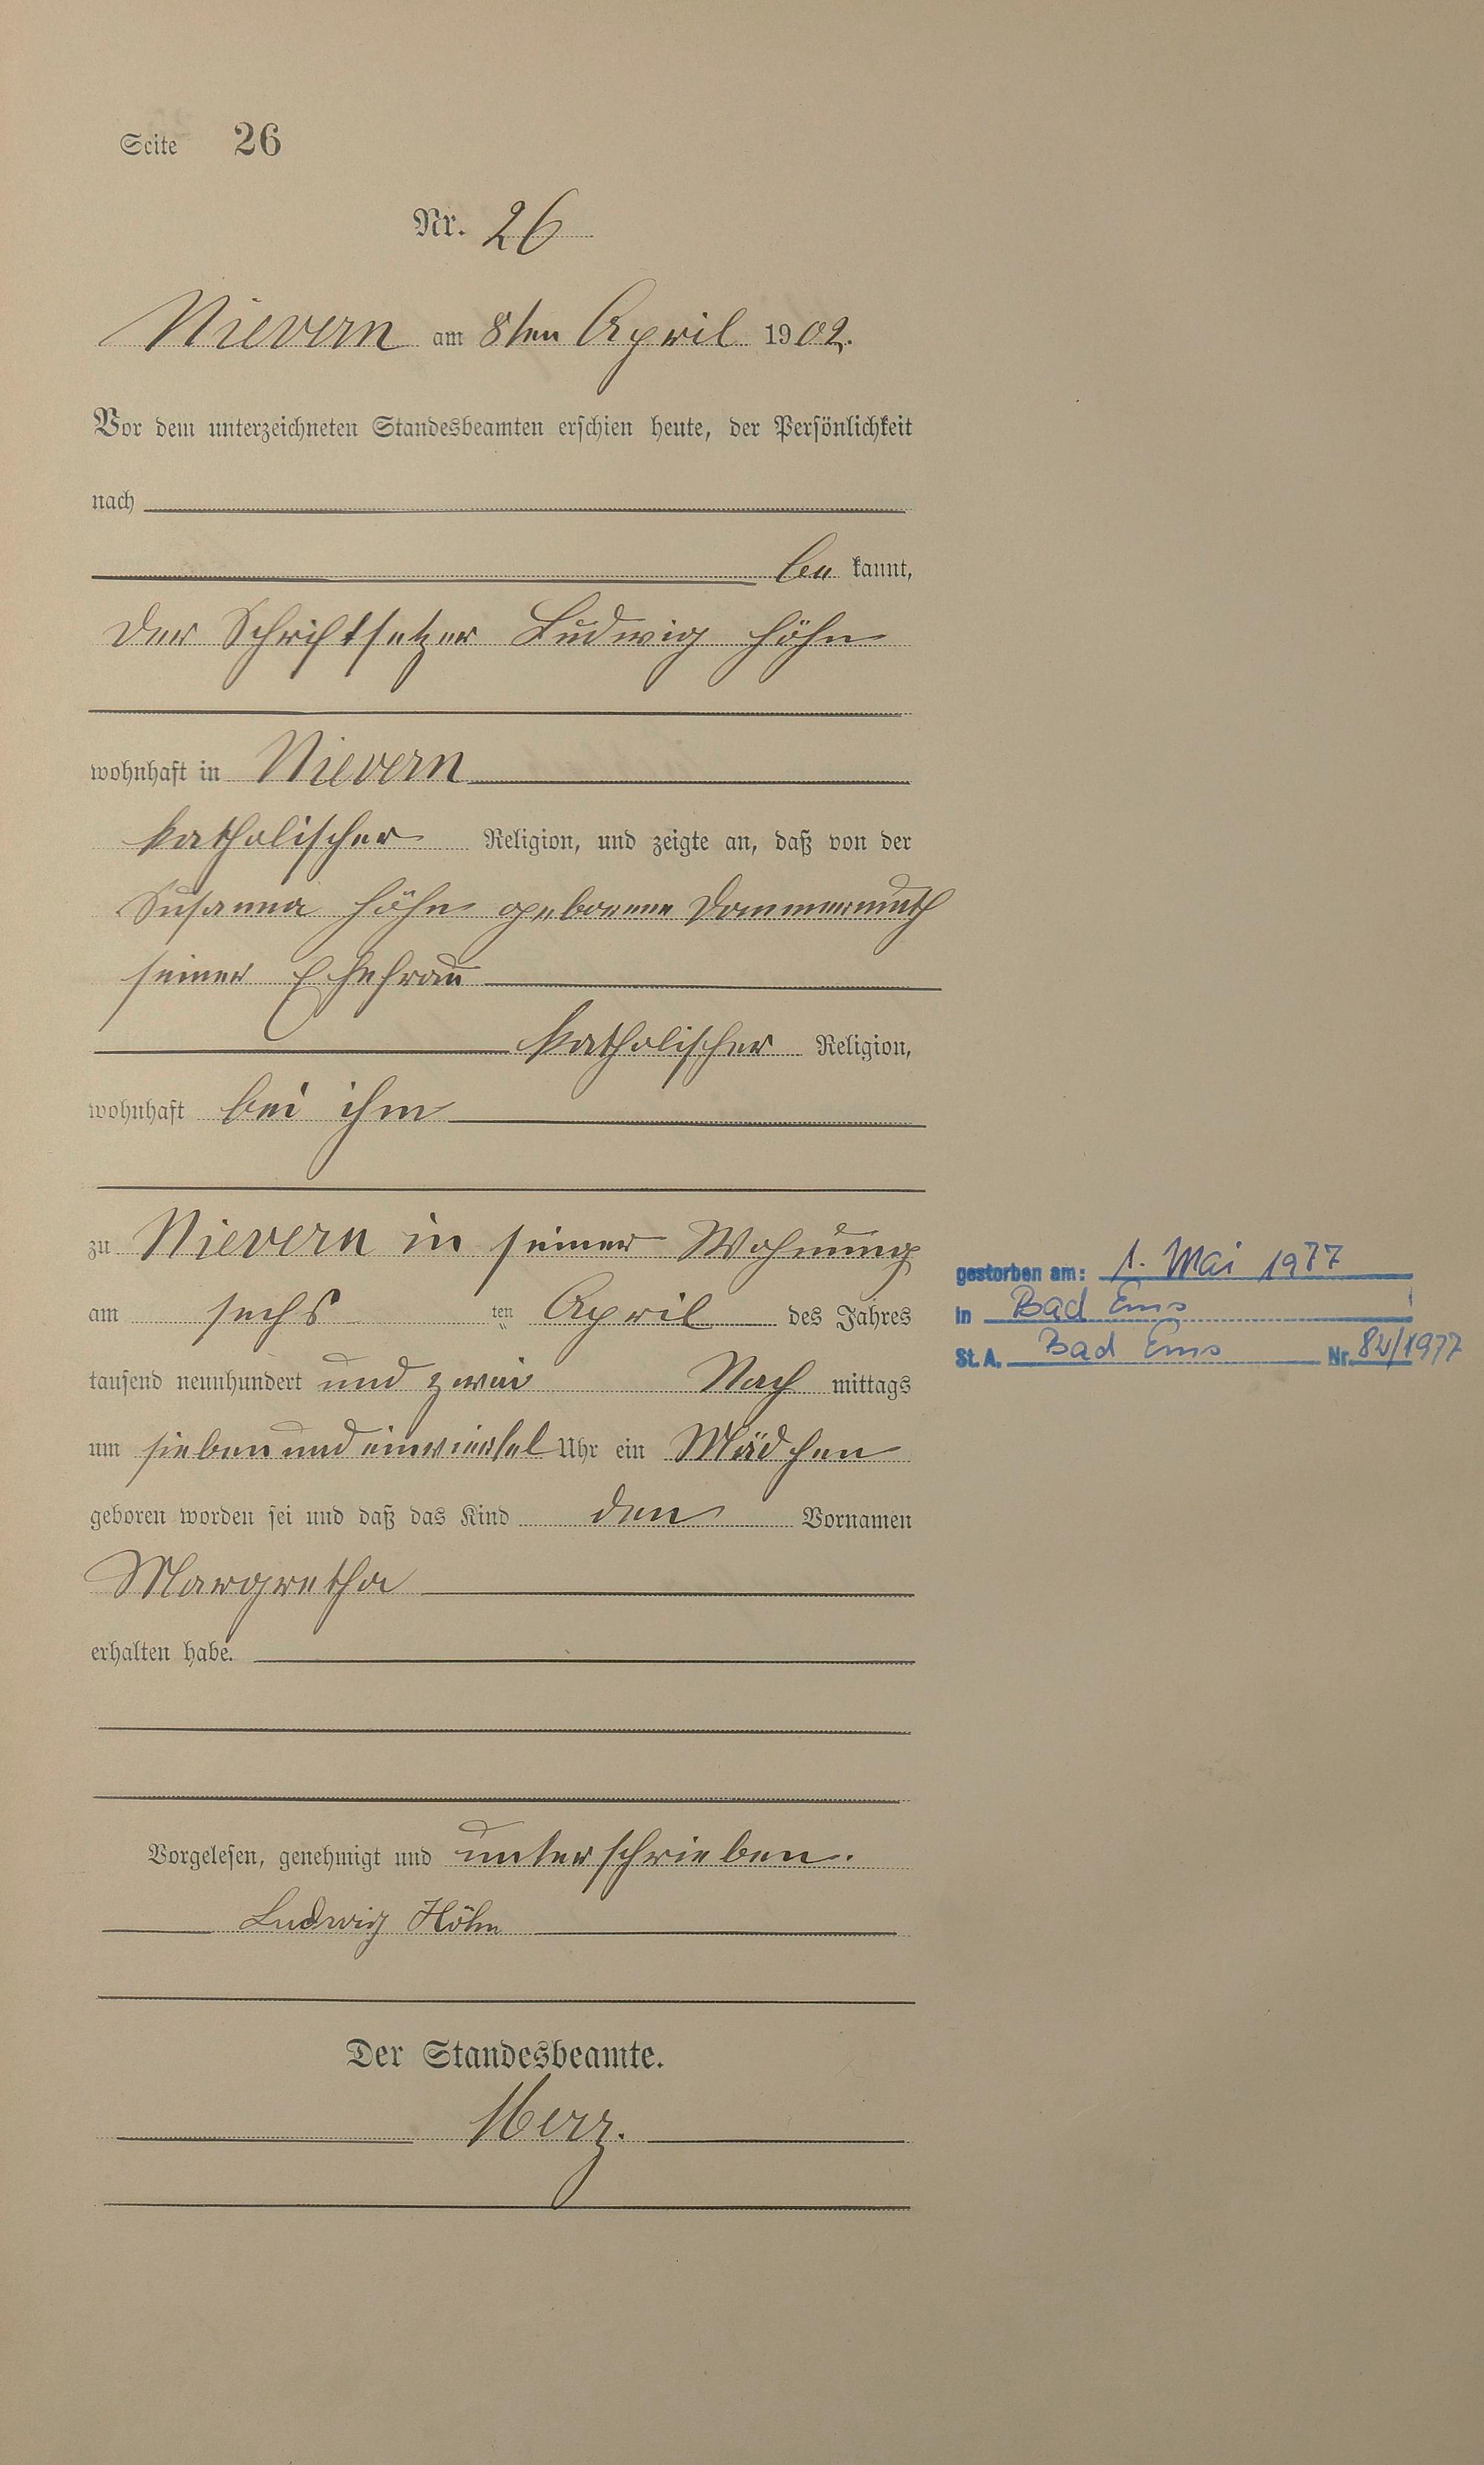 Seite 26
Nr. 26
Nievern am 8ten April 1902.
Vor dem unterzeichneten Standesbeamten erschien heute, der Persönlichkeit
nach
be kannt,
der Schriftsetzer Ludwig Höhn
wohnhaft in Nievern
katholischer Religion, und zeigte an, daß von der
Susanna Höhn geborene Dommermuth
seiner Ehefrau
katholischer Religion,
wohnhaft bei ihm
zu Nievern in seiner Wohnung
am sechs ten April des Jahres
tausend neunhundert und zwei Nach mittags
um sieben und einviertel Uhr ein Mädchen
geboren worden sei und daß das Kind den Vornamen
Margretha
erhalten habe.
Vorgelesen, genehmigt und unterschrieben.
Ludwig Höhn
Der Standesbeamte.
Merz.
gestorben am: 1. Mai 1977
in Bad Ems
St. A. Bad Ems Nr. 82/1977